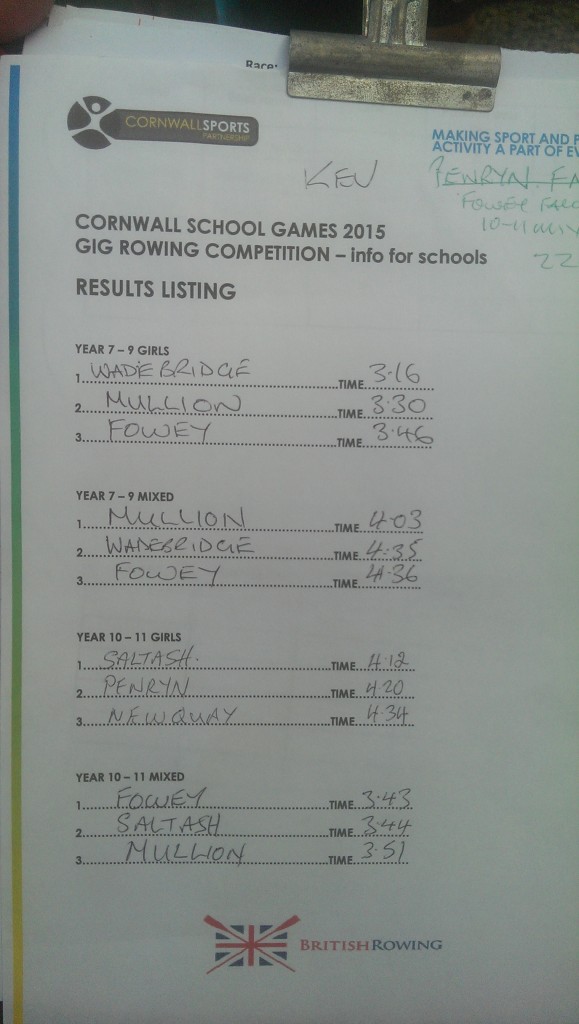 Race:
CORNWALLSPORTS
PARTNERSHIP
MAKING SPORT AND
ACTIVITY A PART OF
KEV
PENRYN
FOWEY
10-11
22
CORNWALL SCHOOL GAMES 2015
GIG ROWING COMPETITION – info for schools
RESULTS LISTING
YEAR 7 – 9 GIRLS
1. WADEBRIDGE TIME 3.16
2. MULLION TIME 3.30
3. FOWEY TIME 3.46
YEAR 7 – 9 MIXED
1 MULLION TIME 4.03
2. WADEBRIDGE TIME 4.35
3. FOWEY TIME 4.36
YEAR 10 – 11 GIRLS
1 SALTASH. TIME 4.12
2. PENRYN TIME 4.20
3. NEWQUAY TIME 4.34
YEAR 10 – 11 MIXED
1 FOWEY TIME 3.43
2. SALTASH TIME 3.44
3. MULLION TIME 3.51
BRITISH ROWING